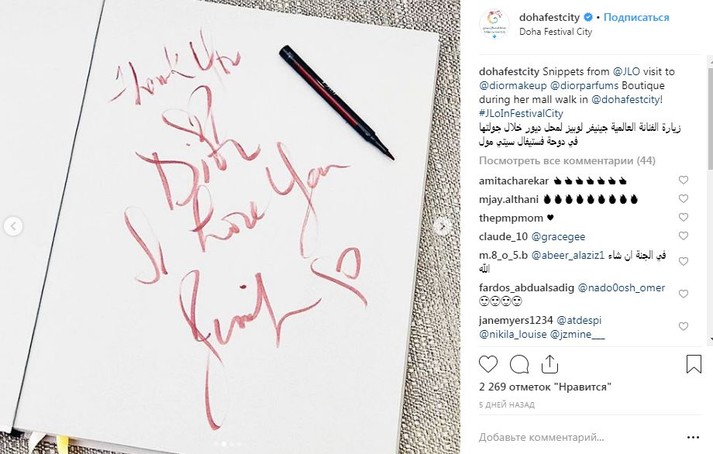 Thank You
Dior
I Love You
dohafestcity • Подписаться
Doha Festival City
dohafestcity Snippets from @JLO visit to
@diormakeup @diorparfums Boutique
during her mall walk in @dohafestcity!
#JLoInFestivalCity
زيارة الفنانة العالمية جينيفر لوبيز لمحل ديور خلال جولتها
في دوحة فستيفال سيتي مول
Посмотреть все комментарии (44)
amitacharekar
mjay.althani
thepmpmom ♥
claude_10 @gracegee
m.8_o_5.b @abeer_alaziz1 في الجنة ان شاء
الله
fardos_abdualsadig @nado0osh_omer
janemyers1234 @atdespi
@nikila_louise @jzmine___
2 269 отметок "Нравится"
5 ДНЕЙ НАЗАД
Добавьте комментарий...